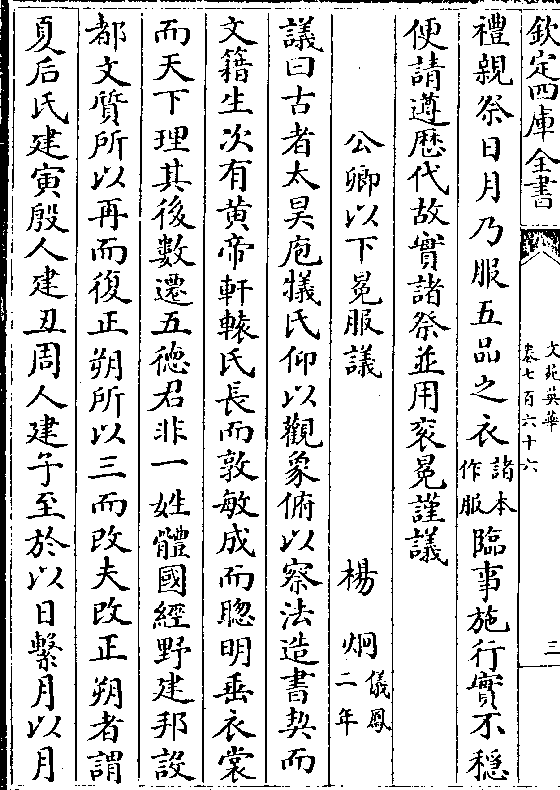 欽定四庫全書
文苑英華
卷七百六十六
三
禮親祭日月乃服五品之衣諸本作服臨事施行實不穩
便請遵歴代故實諸祭並用衮冕謹議
公卿以下冕服議 楊炯儀鳳二年
議曰古者太昊庖犧氏仰以觀象俯以察法造書契而
文籍生次有黄帝軒轅氏長而敦敏成而聰明垂衣裳
而天下理其後數遷五德君非一姓體國經野建邦設
都文質所以再而復正朔所以三而改夫改正朔者謂
夏后氏建寅殷人建丑周人建子至於以日繫月以月